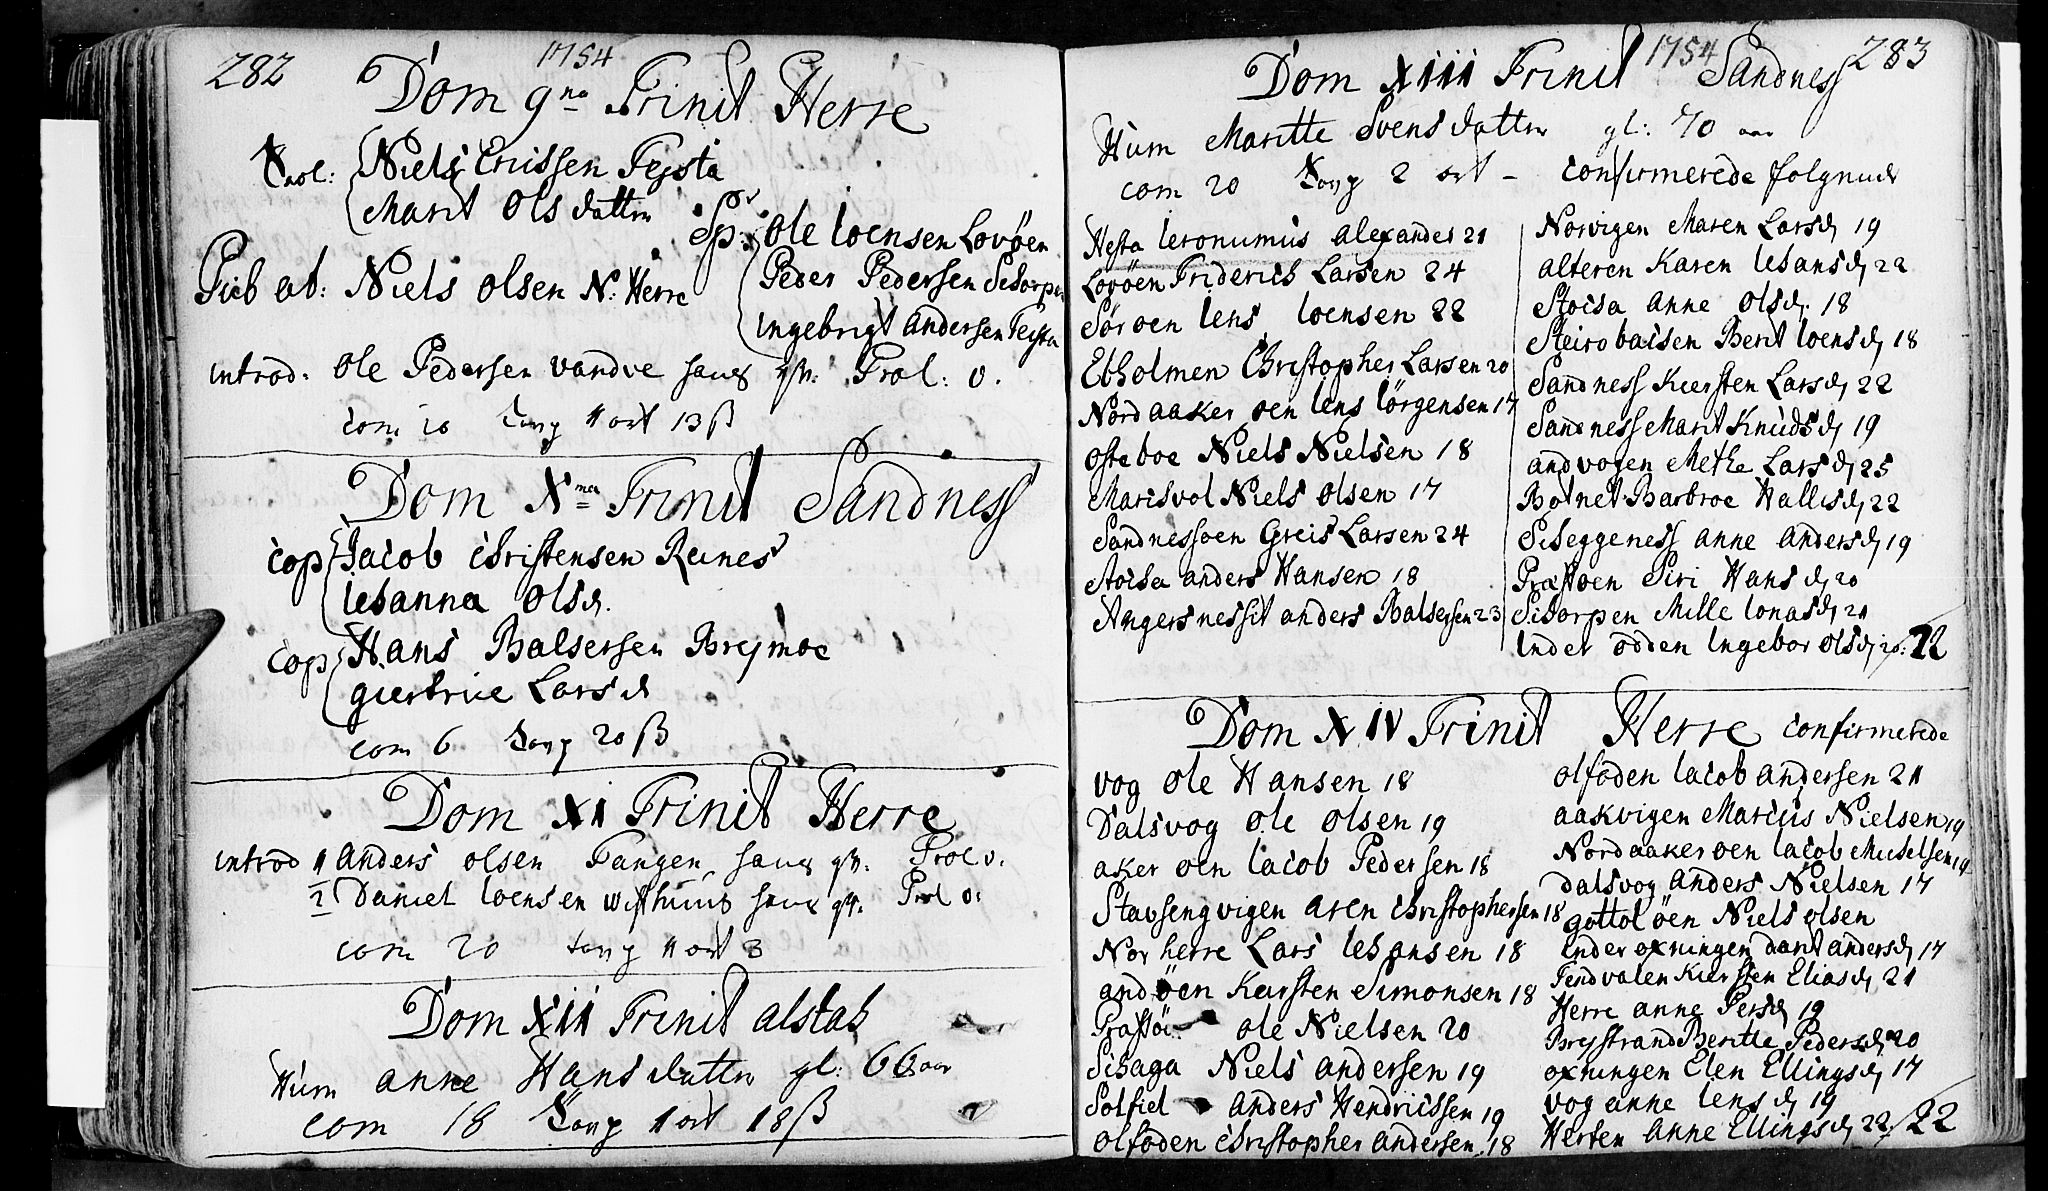 282 1754
Dom 9na Trinit Herre
Trol: Niels Erissen Tejsta
Marit Olsdatter
Sp: Ole Joensen Lovöen
Peder Pedersen
Ingebrigt Andersen Tejsta
Niels Olsen N: Herre
introd: Ole Pedersen Vandve Prol: v.
com 10 1 ort 13 ß
Dom Xma Trinit Sandness
cop Jacob Christensen Reines
Johanna Olsd.
cop Hans Balsersen Brejmoe
giertrue Larsd
com 6 20 ß
Dom XI Trinit Herre
introd 1 Anders Olsen Tangen Prol v.
2 Daniel Joensen Prol v:
com 20 1 ort 3
Dom XII Trinit alstah
Hum anne Hansdatter gl: 66 aar
com 18 1 ort 18 ß
1754 283
Dom XIII Trinit Sandness
Hum Maritte Svensdatter gl: 70 aar
com 20 2 ort - confirmerede folgende
Hesta Ieronumus alexander 21
Lovöen Friderich Larsen 24
Sör oen Iens Ioensen 22
Ebholmen Christopher Larsen 20
Nordaaker oen Iens Iörgensen 17
Osteboe Niels Nielsen 18
Marisvol Niels Olsen 17
Sandnessoen Greis Larsen 24
Stoisa anders Hansen 18
Angersnessit anders Balsersen 23
Norvigen Maren Larsd 19
alteren Karen Iohansd 22
Stoisa anne Olsd. 18
Berit Ioensd 18
Sandness Kiersten Larsd 22
Sandness Marit Knudsd 19
andvogen Methe Larsd 25
Botnet Barbroe Hallisd 22
Scheggeness anne andersd 19
Præstoen Siri Hansd 20
Mille Ionasd 21
Inder odden Ingebor Olsd 20: 22
Dom XIV Trinit Herre confirmerede
vog Ole Hansen 18
Dalsvog Ole Olsen 19
aker oen Iacob Pedersen 18
Stavsengvigen aren Christophersen 18
Nor herre Lars Iohansen 18
andöen Karsten Simonsen 18
Ole Nielsen 20
Sihaga Niels andersen 19
Solfiel anders Hendricssen 19
olfoden Christopher andersen 18
olfoden Iacob andersen 21
aakvigen Marcus Nielsen 19
Nordaaker oen Iacob Michelsen 19
dalsvog anders Nielsen 17
gottol öen Niels Olsen
Inder oxningen dorit andersd 17
Tendvalen Kiersten Eliasd 21
Herre anne Persd 19
Brejstrand Beritte Pedersd 20
oxningen Elen Ellingsd 17
vog anne Iensd 19
Herten anne Ellingsd 22 / 22